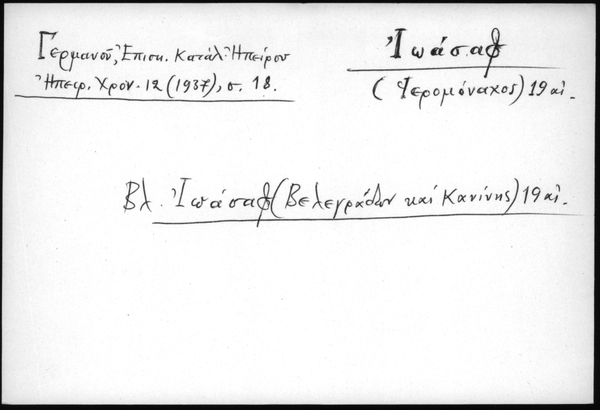 Γερμανοῦ, Ἐπισκ. Κατάλ. Ἠπείρου
Ἠπειρ. Χρον. 12 (1937), σ. 18.
Ἰωάσαφ
(Ἱερομόναχος) 19 αἰ.
Βλ. Ἰωάσαφ (Βελεγράδων καί Κανίνης) 19 αἰ.